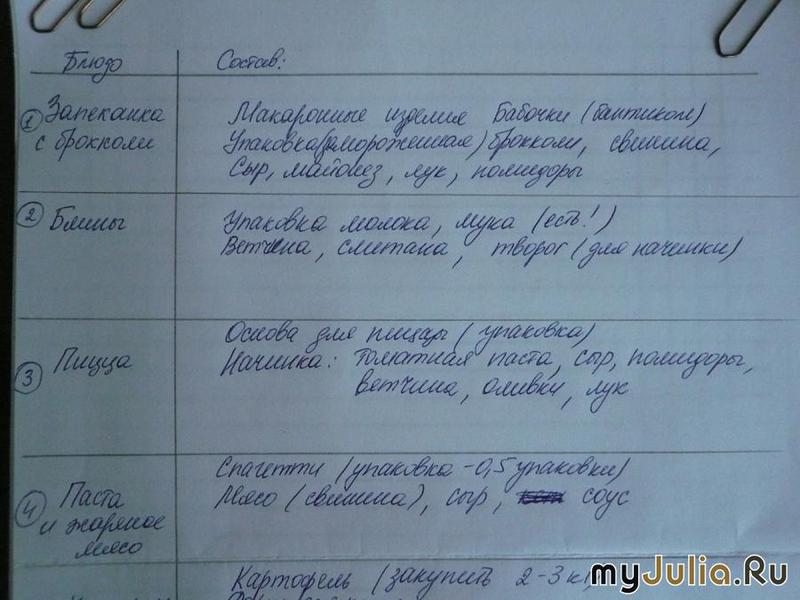 Блюдо Состав:
① Запеканка Макаронные изделия Бабочки (бантиком)
с брокколи Упаковка (замороженная) брокколи, свинина,
Сыр, майонез, лук, помидоры
② Блины Упаковка молока, мука (есть!)
Ветчина, сметана, творог (для начинки)
Основа для пиццы (упаковка)
③ Пицца Начинка: Томатная паста, сыр, помидоры,
ветчина, оливки, лук
Спагетти (упаковка - 0,5 упаковки)
④ Паста Мясо (свинина), сыр, соус
и жареное
мясо
Картофель (закупить 2-3 кг,
myJulia.Ru